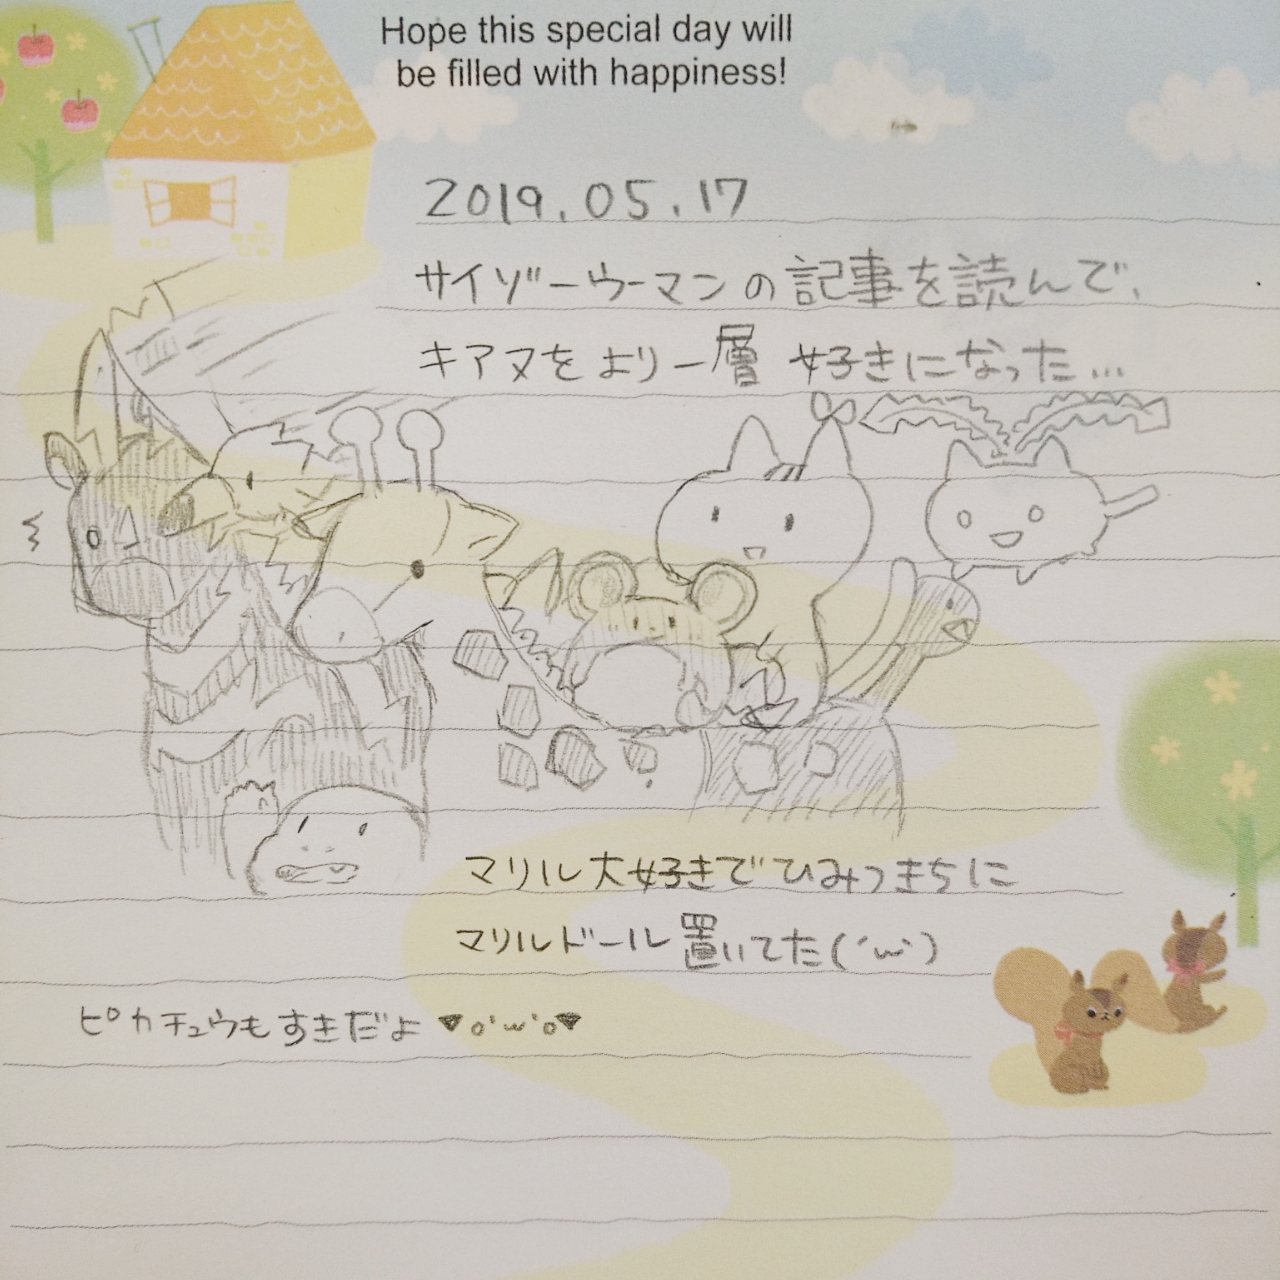 Hope this special day will
be filled with happiness!
2019.05.17
サイゾーウーマンの記事を読んで、
キアヌをより一層 好きになった…
マリル大好きでひみつきちに
マリルドール置いてた(´ω`)
ピカチュウもすきだよ▼o'ω'o▼